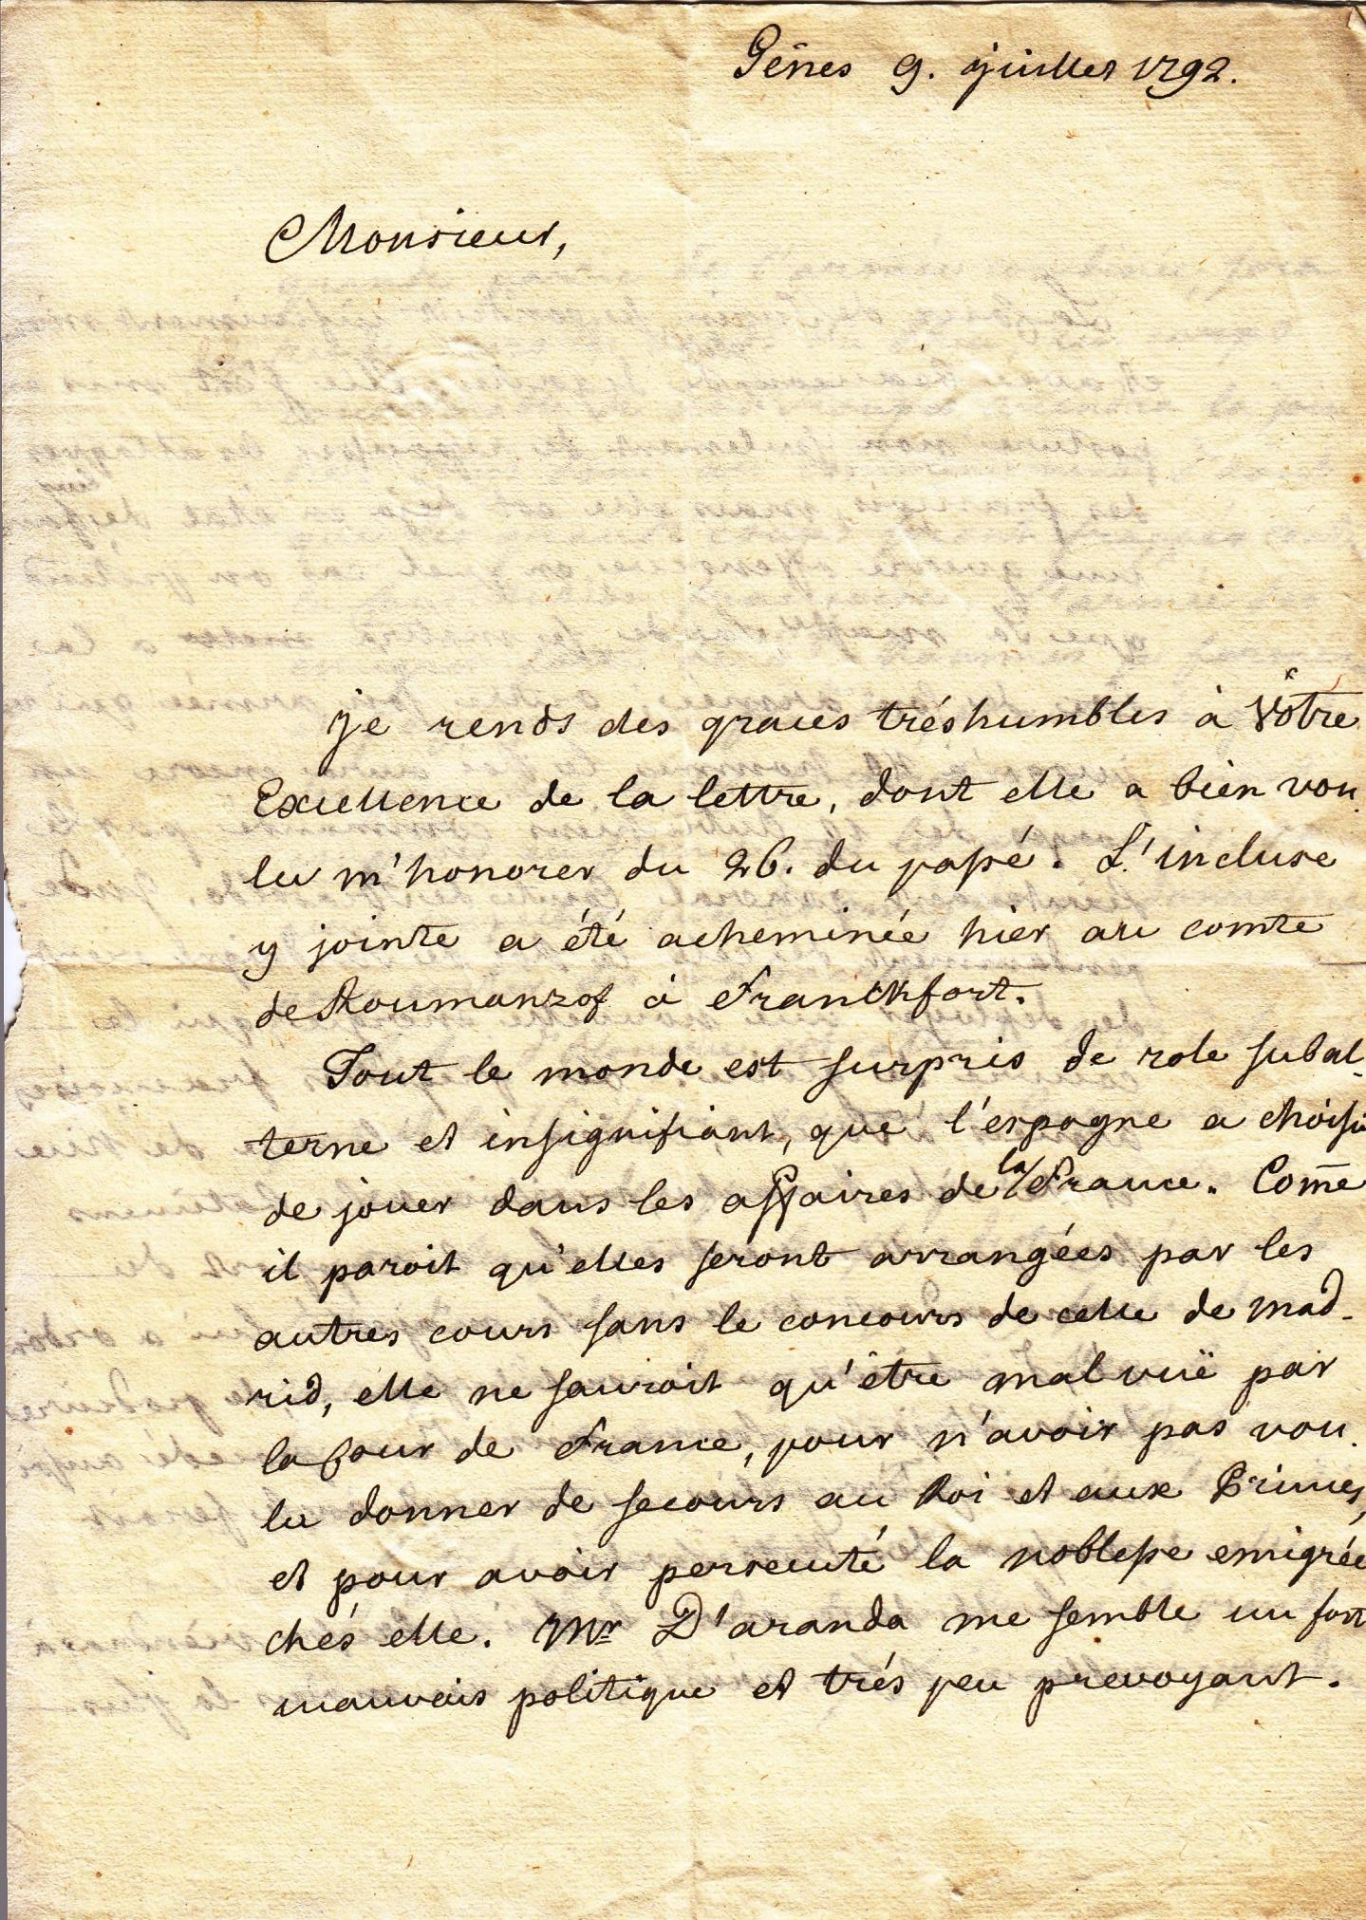 Gênes 9. juillet 1792.
Monsieur,
je rends des graces trés humbles à Vôtre
Excellence de la lettre, dont elle a bien vou-
lu m'honorer du 26. du passé. L'incluse
y jointe a été acheminée hier au comte
de Roumanzof à Franckfort.
Tout le monde est surpris de role subal-
terne et insignifiant, que l'espagne a choisi
de jouer dans les affaires de la France. Come
il paroit qu'elles seront arrangées par les
autres cours sans le concours de celle de mad-
rid, elle ne sauroit qu'être mal vuë par
la Cour de France, pour n'avoir pas vou-
lu donner de secours au Roi et aux Princes,
et pour avoir persecuté la noblesse emigrée
chés elle. Mr D'aranda me semble un fort
mauvais politique et trés peu prevoyant.